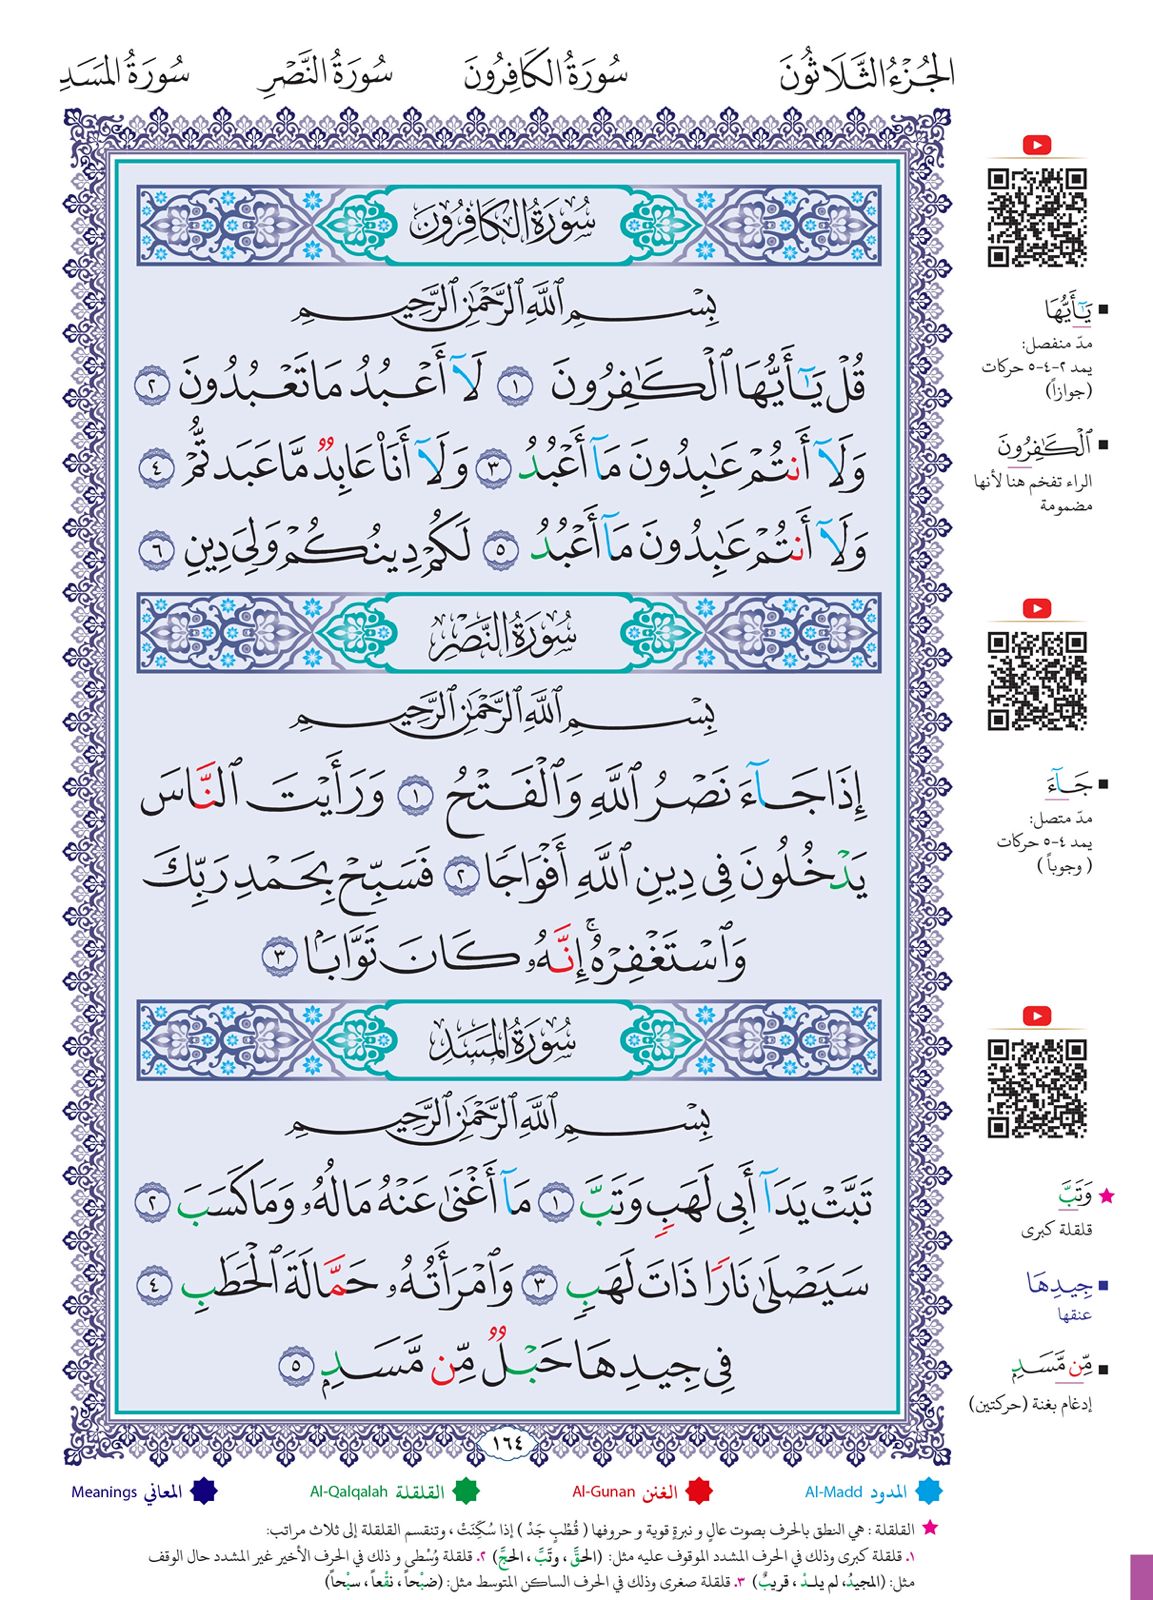 الجُزْءُ الثَّلَاثُونَ سُورَةُ الكَافِرُونَ سُورَةُ النَّصْرِ سُورَةُ المَسَدِ
سُورَةُ الكَافِرُونَ
بِسْمِ ٱللَّهِ ٱلرَّحْمَٰنِ ٱلرَّحِيمِ
قُلْ يَٰٓأَيُّهَا ٱلْكَٰفِرُونَ ١ لَآ أَعْبُدُ مَا تَعْبُدُونَ ٢
وَلَآ أَنتُمْ عَٰبِدُونَ مَآ أَعْبُدُ ٣ وَلَآ أَنَا۠ عَابِدٌ مَّا عَبَدتُّمْ ٤
وَلَآ أَنتُمْ عَٰبِدُونَ مَآ أَعْبُدُ ٥ لَكُمْ دِينُكُمْ وَلِىَ دِينِ ٦
سُورَةُ النَّصْرِ
بِسْمِ ٱللَّهِ ٱلرَّحْمَٰنِ ٱلرَّحِيمِ
إِذَا جَآءَ نَصْرُ ٱللَّهِ وَٱلْفَتْحُ ١ وَرَأَيْتَ ٱلنَّاسَ
يَدْخُلُونَ فِى دِينِ ٱللَّهِ أَفْوَاجًا ٢ فَسَبِّحْ بِحَمْدِ رَبِّكَ
وَٱسْتَغْفِرْهُ ۚ إِنَّهُۥ كَانَ تَوَّابًۢا ٣
سُورَةُ المَسَدِ
بِسْمِ ٱللَّهِ ٱلرَّحْمَٰنِ ٱلرَّحِيمِ
تَبَّتْ يَدَآ أَبِى لَهَبٍ وَتَبَّ ١ مَآ أَغْنَىٰ عَنْهُ مَالُهُۥ وَمَا كَسَبَ ٢
سَيَصْلَىٰ نَارًا ذَاتَ لَهَبٍ ٣ وَٱمْرَأَتُهُۥ حَمَّالَةَ ٱلْحَطَبِ ٤
فِى جِيدِهَا حَبْلٌ مِّن مَّسَدٍۭ ٥
١٦٤
يَٰٓأَيُّهَا
مدّ منفصل:
يمد ٢-٤-٥ حركات
(جوازاً)
ٱلْكَٰفِرُونَ
الراء تفخم هنا لأنها
مضمومة
جَآءَ
مدّ متصل:
يمد ٤-٥ حركات
( وجوباً )
وَتَبَّ
قلقلة كبرى
جِيدِهَا
عنقها
مِّن مَّسَدٍۭ
إدغام بغنة (حركتين)
المدود Al-Madd الغنن Al-Gunan القلقلة Al-Qalqalah المعاني Meanings
القلقلة : هي النطق بالحرف بصوت عالٍ و نبرةٍ قوية و حروفها ( قُطْبٍ جَدْ ) إذا سُكِّنَتْ ، وتنقسم القلقلة إلى ثلاث مراتب:
١. قلقلة كبرى وذلك في الحرف المشدد الموقوف عليه مثل: (الحقّ ، وتَبَّ ، الحجّ) ٢. قلقلة وُسْطى و ذلك في الحرف الأخير غير المشدد حال الوقف
مثل: (المجيدُ، لم يلدْ ، قريبٌ) ٣. قلقلة صغرى وذلك في الحرف الساكن المتوسط مثل: (ضبْحاً ، نقْعاً ، سبْحاً)